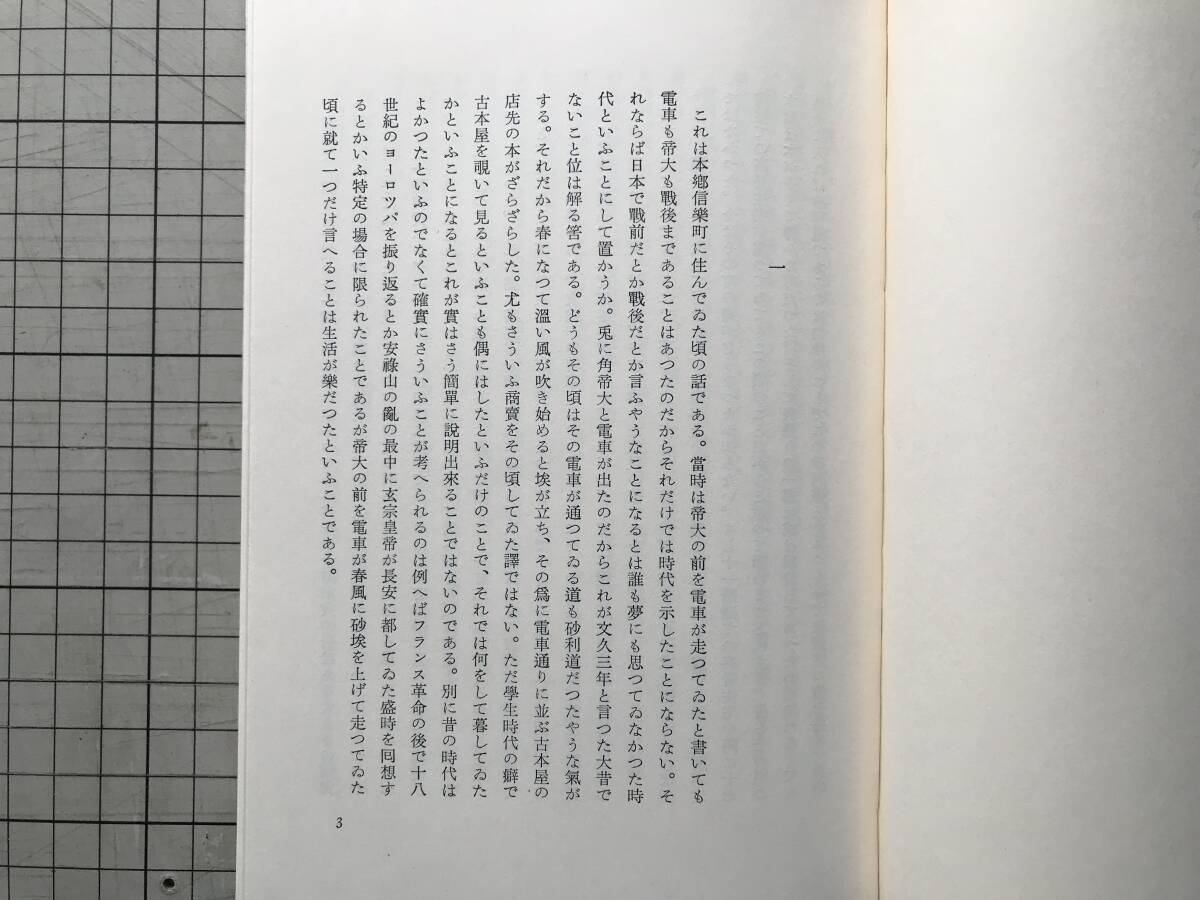 一
これは本鄕信樂町に住んでゐた頃の話である。當時は帝大の前を電車が走つてゐたと書いても
電車も帝大も戰後まであることはあつたのだからそれだけでは時代を示したことにならない。そ
れならば日本で戰前だとか戰後だとか言ふやうなことになるとは誰も夢にも思つてゐなかつた時
代といふことにして置かうか。兎に角帝大と電車が出たのだからこれが文久三年と言つた大昔で
ないこと位は解る筈である。どうもその頃はその電車が通つてゐる道も砂利道だつたやうな氣が
する。それだから春になつて溫い風が吹き始めると埃が立ち、その爲に電車通りに並ぶ古本屋の
店先の本がざらざらした。尤もさういふ商賣をその頃してゐた譯ではない。ただ學生時代の癖で
古本屋を覗いて見るといふことも偶にはしたといふだけのことで、それでは何をして暮してゐた
かといふことになるとこれが實はさう簡單に說明出來ることではないのである。別に昔の時代は
よかつたといふのでなくて確實にさういふことが考へられるのは例へばフランス革命の後で十八
世紀のヨーロツパを振り返るとか安祿山の亂の最中に玄宗皇帝が長安に都してゐた盛時を囘想す
るとかいふ特定の場合に限られたことであるが帝大の前を電車が春風に砂埃を上げて走つてゐた
頃に就て一つだけ言へることは生活が樂だつたといふことである。
3